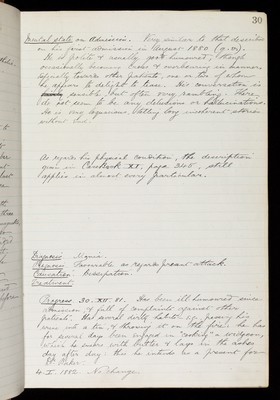 30
Mental state on Admission. Very similar to that described
on his first admission in August 1880 (q.v.).
He is polite & usually good humoured, though
occasionally becoming cross & overbearing in manner
especially towards other patients, one or two of whom
he appears to delight to tease. His conversation is
sensible, but often very rambling. There
do not seem to be any delusions or hallucinations.
He is very loquacious, telling long irrelevant stories
without end.
As regards his physical condition, the description
given in Casebook XI, page 345, still
applies in almost every particular.
Diagnosis Mania.
Prognosis Favourable as regards present attack.
Causation Dissipation.
Treatment
Progress 30. XII. 81. Has been ill humoured since
admission & full of complaints against other
patients. Has several dirty habits e.g. passing his
urine into a tin & throwing it on the fire. He has
for several days been engaged in "cooking" a widgeon,
which he bastes with butter & lays in the ashes
day after day: this he intends as a present for
Dr.
4. I. 1882 No change.